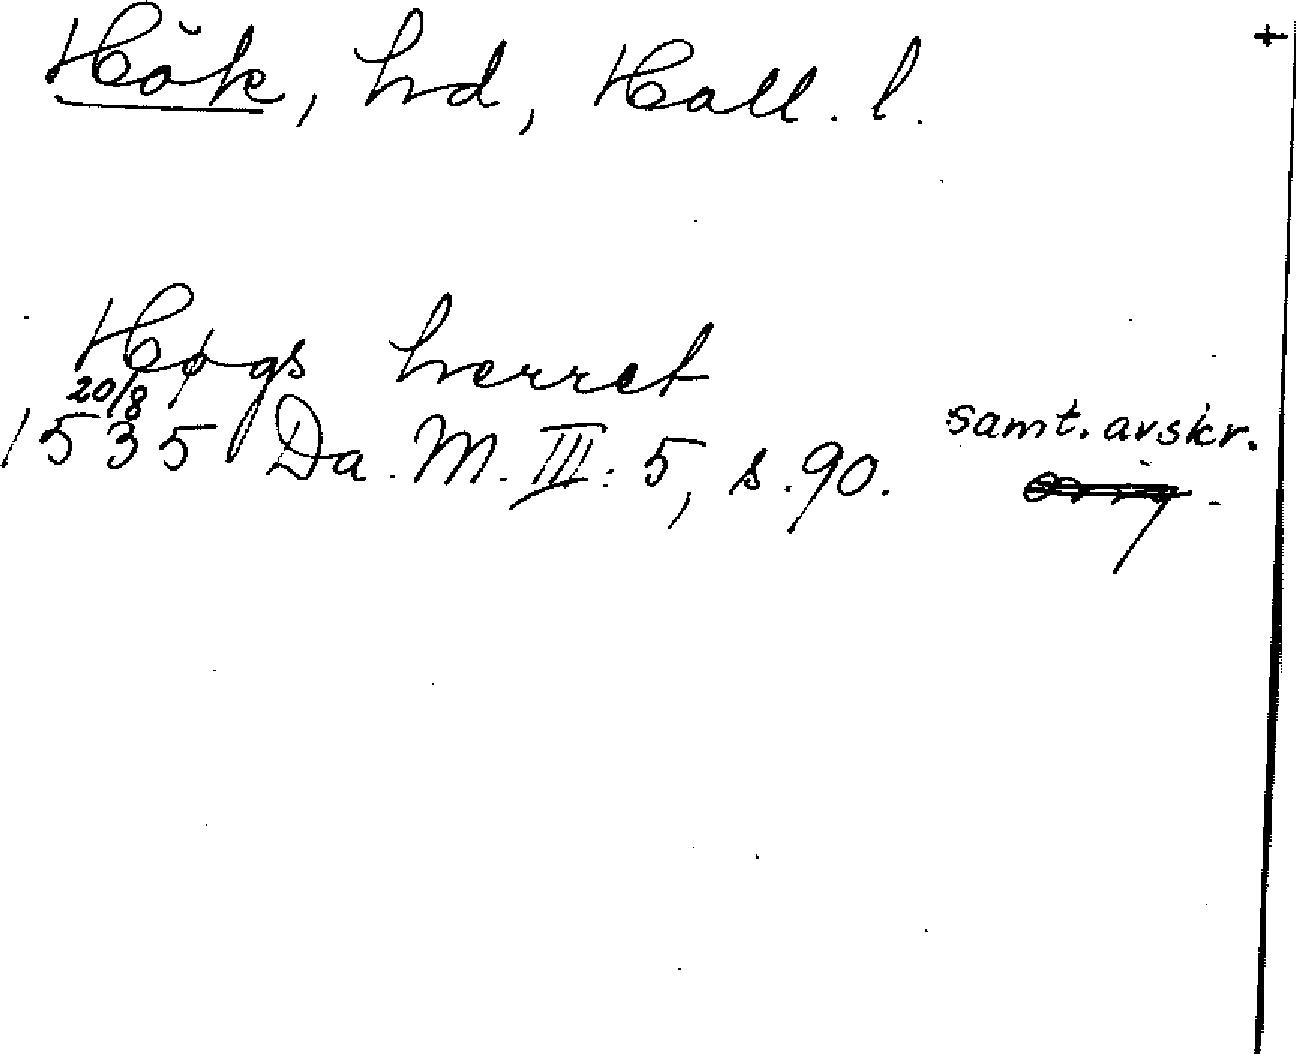 Hök, hd, Hall. l. +
Høgs herret
20/8
1535 Da. M. III: 5, s. 90. samt. avskr.